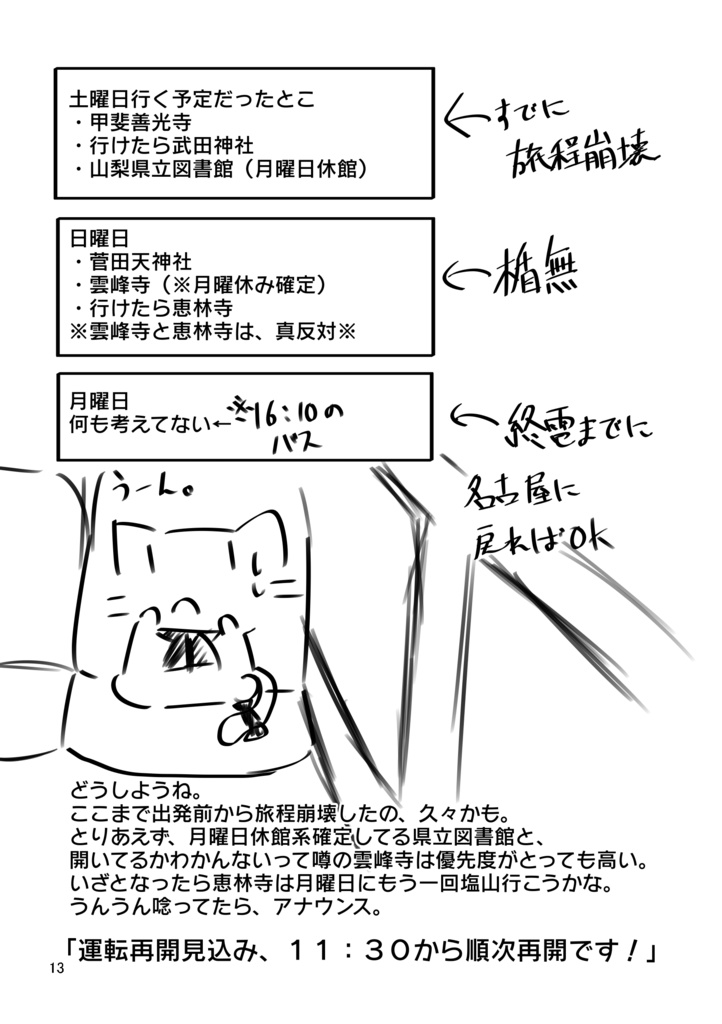 土曜日行く予定だったとこ
・甲斐善光寺
・行けたら武田神社
・山梨県立図書館（月曜日休館）
←すでに
旅程崩壊
日曜日
・菅田天神社
・雲峰寺（※月曜休み確定）
・行けたら恵林寺
※雲峰寺と恵林寺は、真反対※
←楯無
月曜日
何も考えてない←※16:10の
バス
←終電までに
名古屋に
戻ればOK
うーん。
どうしようね。
ここまで出発前から旅程崩壊したの、久々かも。
とりあえず、月曜日休館系確定してる県立図書館と、
開いてるかわかんないって噂の雲峰寺は優先度がとっても高い。
いざとなったら恵林寺は月曜日にもう一回塩山行こうかな。
うんうん唸ってたら、アナウンス。
「運転再開見込み、１１：３０から順次再開です！」
13